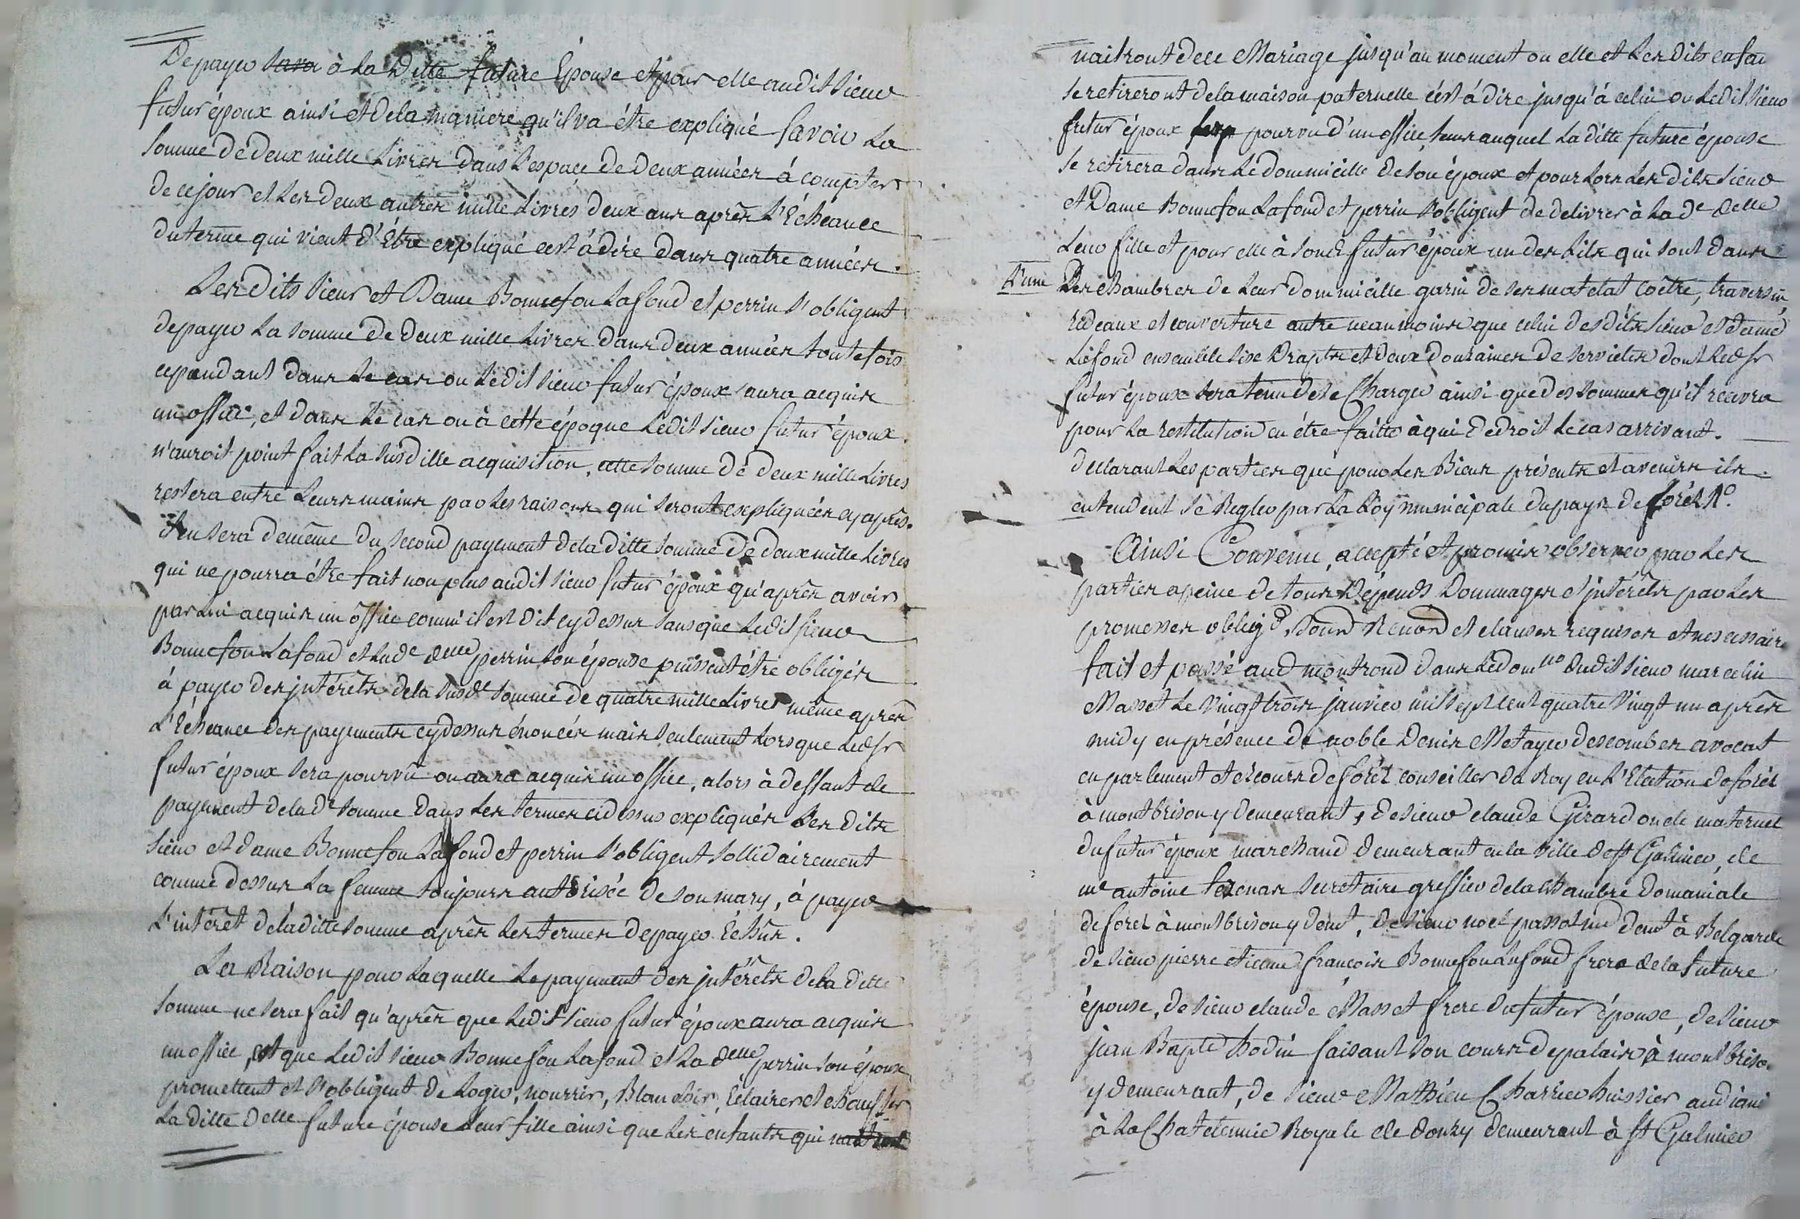 De payer à la ditte future Epouse et pour elle audit sieur
futur époux ainsi et de la maniere qu'il va être expliqué savoir La
somme de deux mille Livres dans l'espace de deux années à compter
de ce jour et Les deux autres mille Livres deux ans après l'Echéance
du terme qui vient d'Etre expliqué cest à dire dans quatre années.
Les dits sieur et Dame Bonnefou Lafond et perrin s'obligent
de payer La somme de deux mille Livres dans deux années toutefois
cependant dans le cas ou Ledit sieur futur époux aura acquis
un office, et dans le cas ou à cette époque Ledit sieur futur époux
n'auroit point fait La susditte acquisition, cette somme de deux mille Livres
restera entre Leurs mains par les raisons qui seront expliquées cy après.
Il en sera de même du second payement de la ditte somme de deux mille Livres
qui ne pourra être fait non plus audit sieur futur époux qu'après avoir
par lui acquis un office comm'il est dit cy dessus sans que Ledit sieur
Bonnefou Lafond et lade delle perrin son épouse puissent être obligés
à payer des jntérêts de la susdt somme de quatre mille Livres même après
L'Echéance des payments cy dessus énoncés mais seulement Lorsque Led sr
futur époux sera pourvû ou aura acquis un office, alors à deffaut de
payment de la de somme dans Les termes ci dessus expliqués Les dits
sieur et dame Bonnefou Lafond et perrin s'obligent sollidairement
comme dessus La femme toujours authorisée de son mary, à payer
L'intérêt de la ditte somme après Les termes de payer Echûs.
La Raison pour Laquelle Le payment des jntérêts de la ditte
somme ne sera fait qu'après que Ledit sieur futur époux aura acquis
un office, est que Ledit sieur Bonnefou Lafond et La delle perrin son épouse
promettent et s'obligent de Loger, nourrir, Blanchir, Eclairer et chauffer
La ditte delle future épouse Leur fille ainsi que Les enfants qui naitront
naitront de ce Mariage jusqu'au moment ou elle et Les dits enfan
se retireront de la maison paternelle cest à dire jusqu'à celui ou Ledit sieur
futur époux sera pourvu d'un office, tems auquel La ditte future épouse
se retirera dans Le domicille de son époux et pour Lors Les dits sieur
et Dame Bonnefou Lafond et perrin s'obligent de delivrer à La de delle
Leur fille et pour elle à sond futur époux un des Lits qui sont dans
L'une Des chambres de Leur domicille garni de ses matelat coëtre, traversin
rideaux et couverture autre neanmoins que celui desdits sieur et dame
Lafond ensemble six Draps et deux douzaines de serviettes dont Led sr
futur époux sera tenu de se Charger ainsi que des sommes qu'il recevra
pour La restitution en être faitte à qui De droit Le cas arrivant.
declarant Les parties que pour Les Biens présents et avenirs ils
entendent se Regler par La Loy municipale du pays de forêts.
Ainsi Convenu, accepté et promis observer par Les
parties a peine de tous Dépends Dommages et jntérêts par Les
promesses oblig.d, soum.d Renon.d et clauses requises et necessaire
fait et passé aud montrond dans Le dom.lle dudit sieur marcelin
Masset Le Vingt trois janvier mil sept cent quatre Vingt un après
midy en présence de noble Denis Metayer descombes avocat
en parlement et ès cours de forêt conseiller du Roy en L'Election de forêt
à montbrison y demeurant, de sieur claude Girard oncle maternel
du futur époux marchand demeurant en la Ville de st Galmier, de
me antoine secretaire greffier de la Chambre Domaniale
de forêt à montbrison y demt, de sieur noel demt à Belgarde
de sieur pierre etienne françois Bonnefou Lafond frere de la future
épouse, de sieur claude Masset frere du futur épouse, de sieur
jean Bapte hodin faisant son cours de palais à montbrison
y demeurant, de sieur Mathieu Charrier huissier audiancier
à La Chatelennie Royale de donzy demeurant à st Galmier